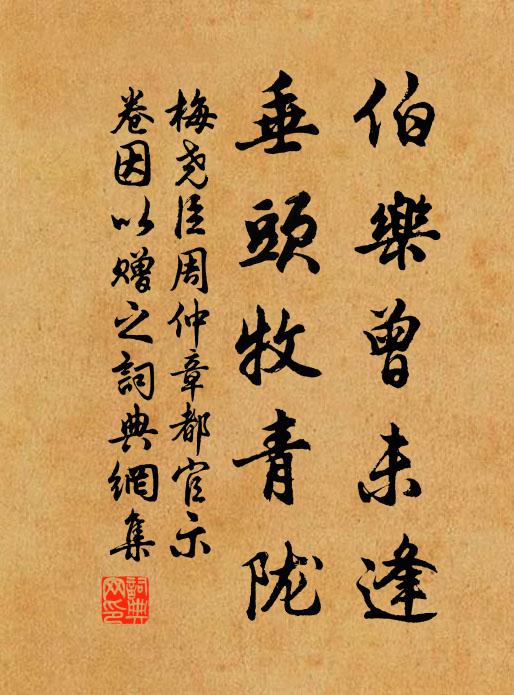 伯樂曾未逢
垂頭牧青陇
梅堯臣周仲章都官示
卷因以赠之詞典網集
詞典网印